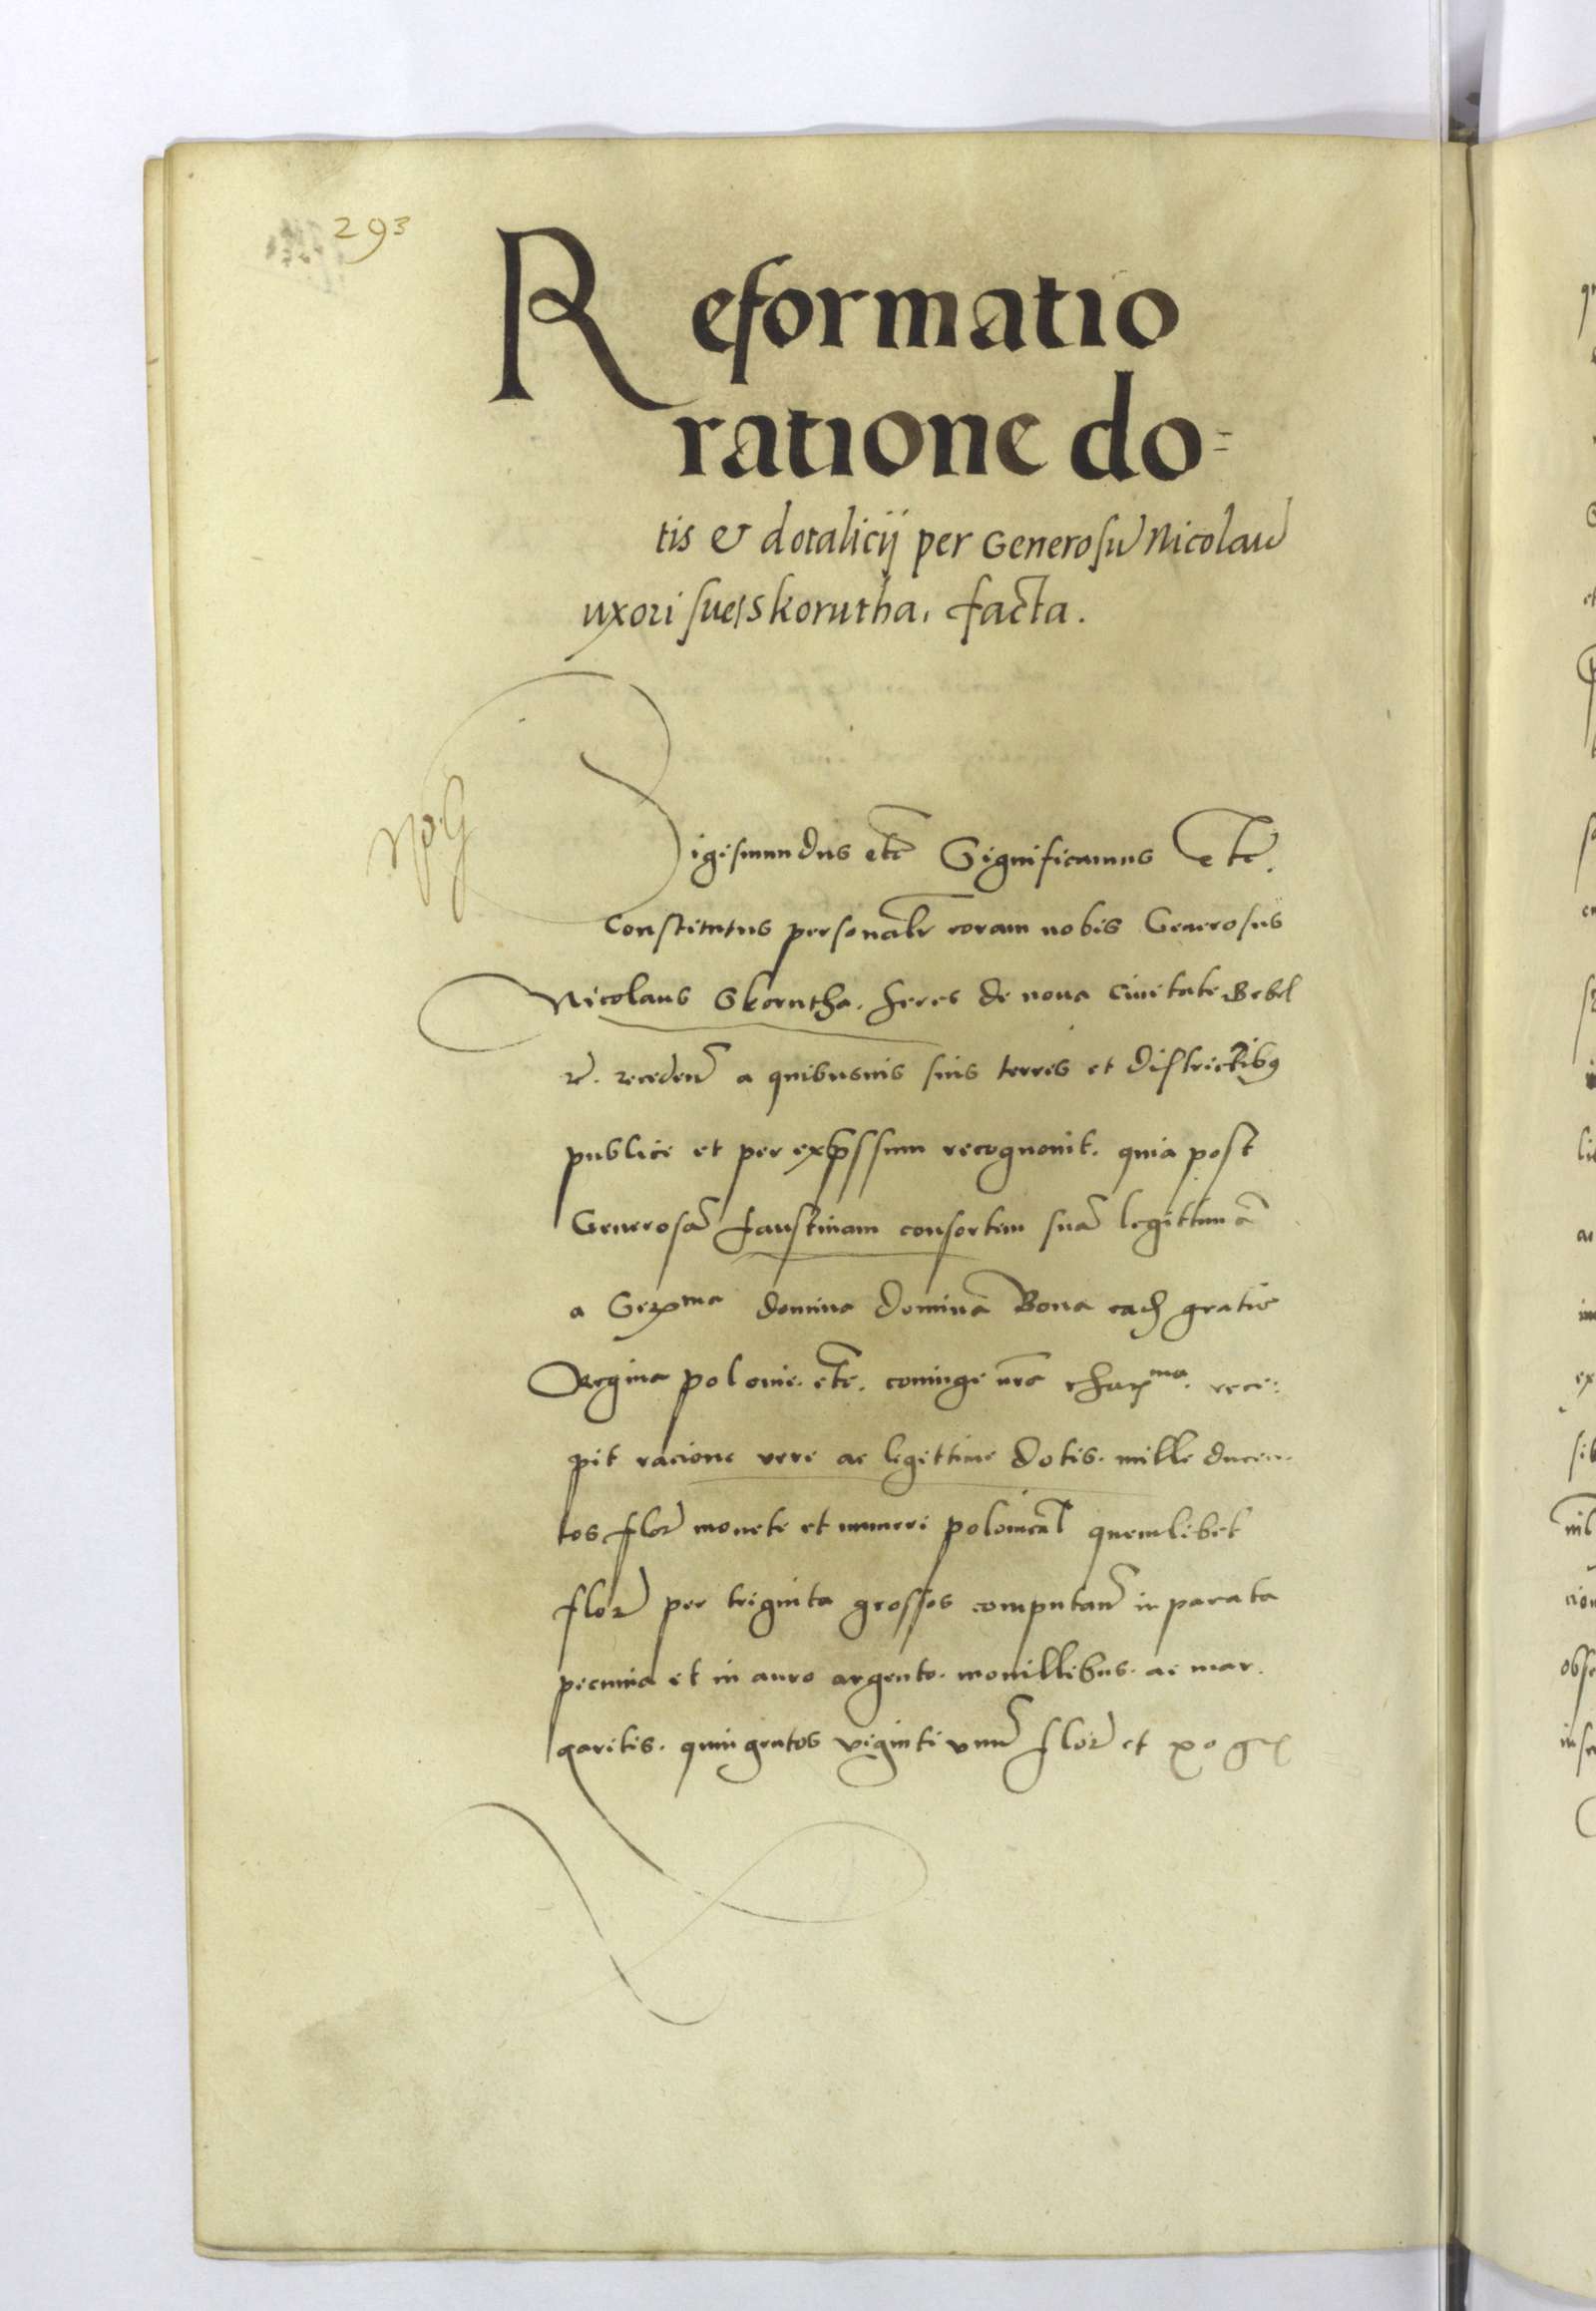 293
Reformatio
ratione do=
tis & dotalicij per Generosũ Nicolaũ
uxori sue, Skorutha, facta.
Sigismundus etc̃ Significamus etc̃.
Constitutus personalr̃ coram nobis Generosus
Nicolaus Skorutha. heres de nova Civitate
recedeñ a quibusvis suis terris et districtibus
publice et per exp̃ssum recognovit. quia post
Generosã Faustinam consortem suã legittimã
a Serma domina dominã Bona eadẽ gratie
Regina polonie. etc̃. coniuge nrã charma. rece:
pit racione vere ac legittime dotis. mille ducen
tos flor̃ monete et numeri polonical̃ quemlibet
flor̃ per triginta grossos computañ in parata
pecunia et in auro argento. monillibus. ac mar.
garitis. quingentos viginti unũ flor̃ et xo